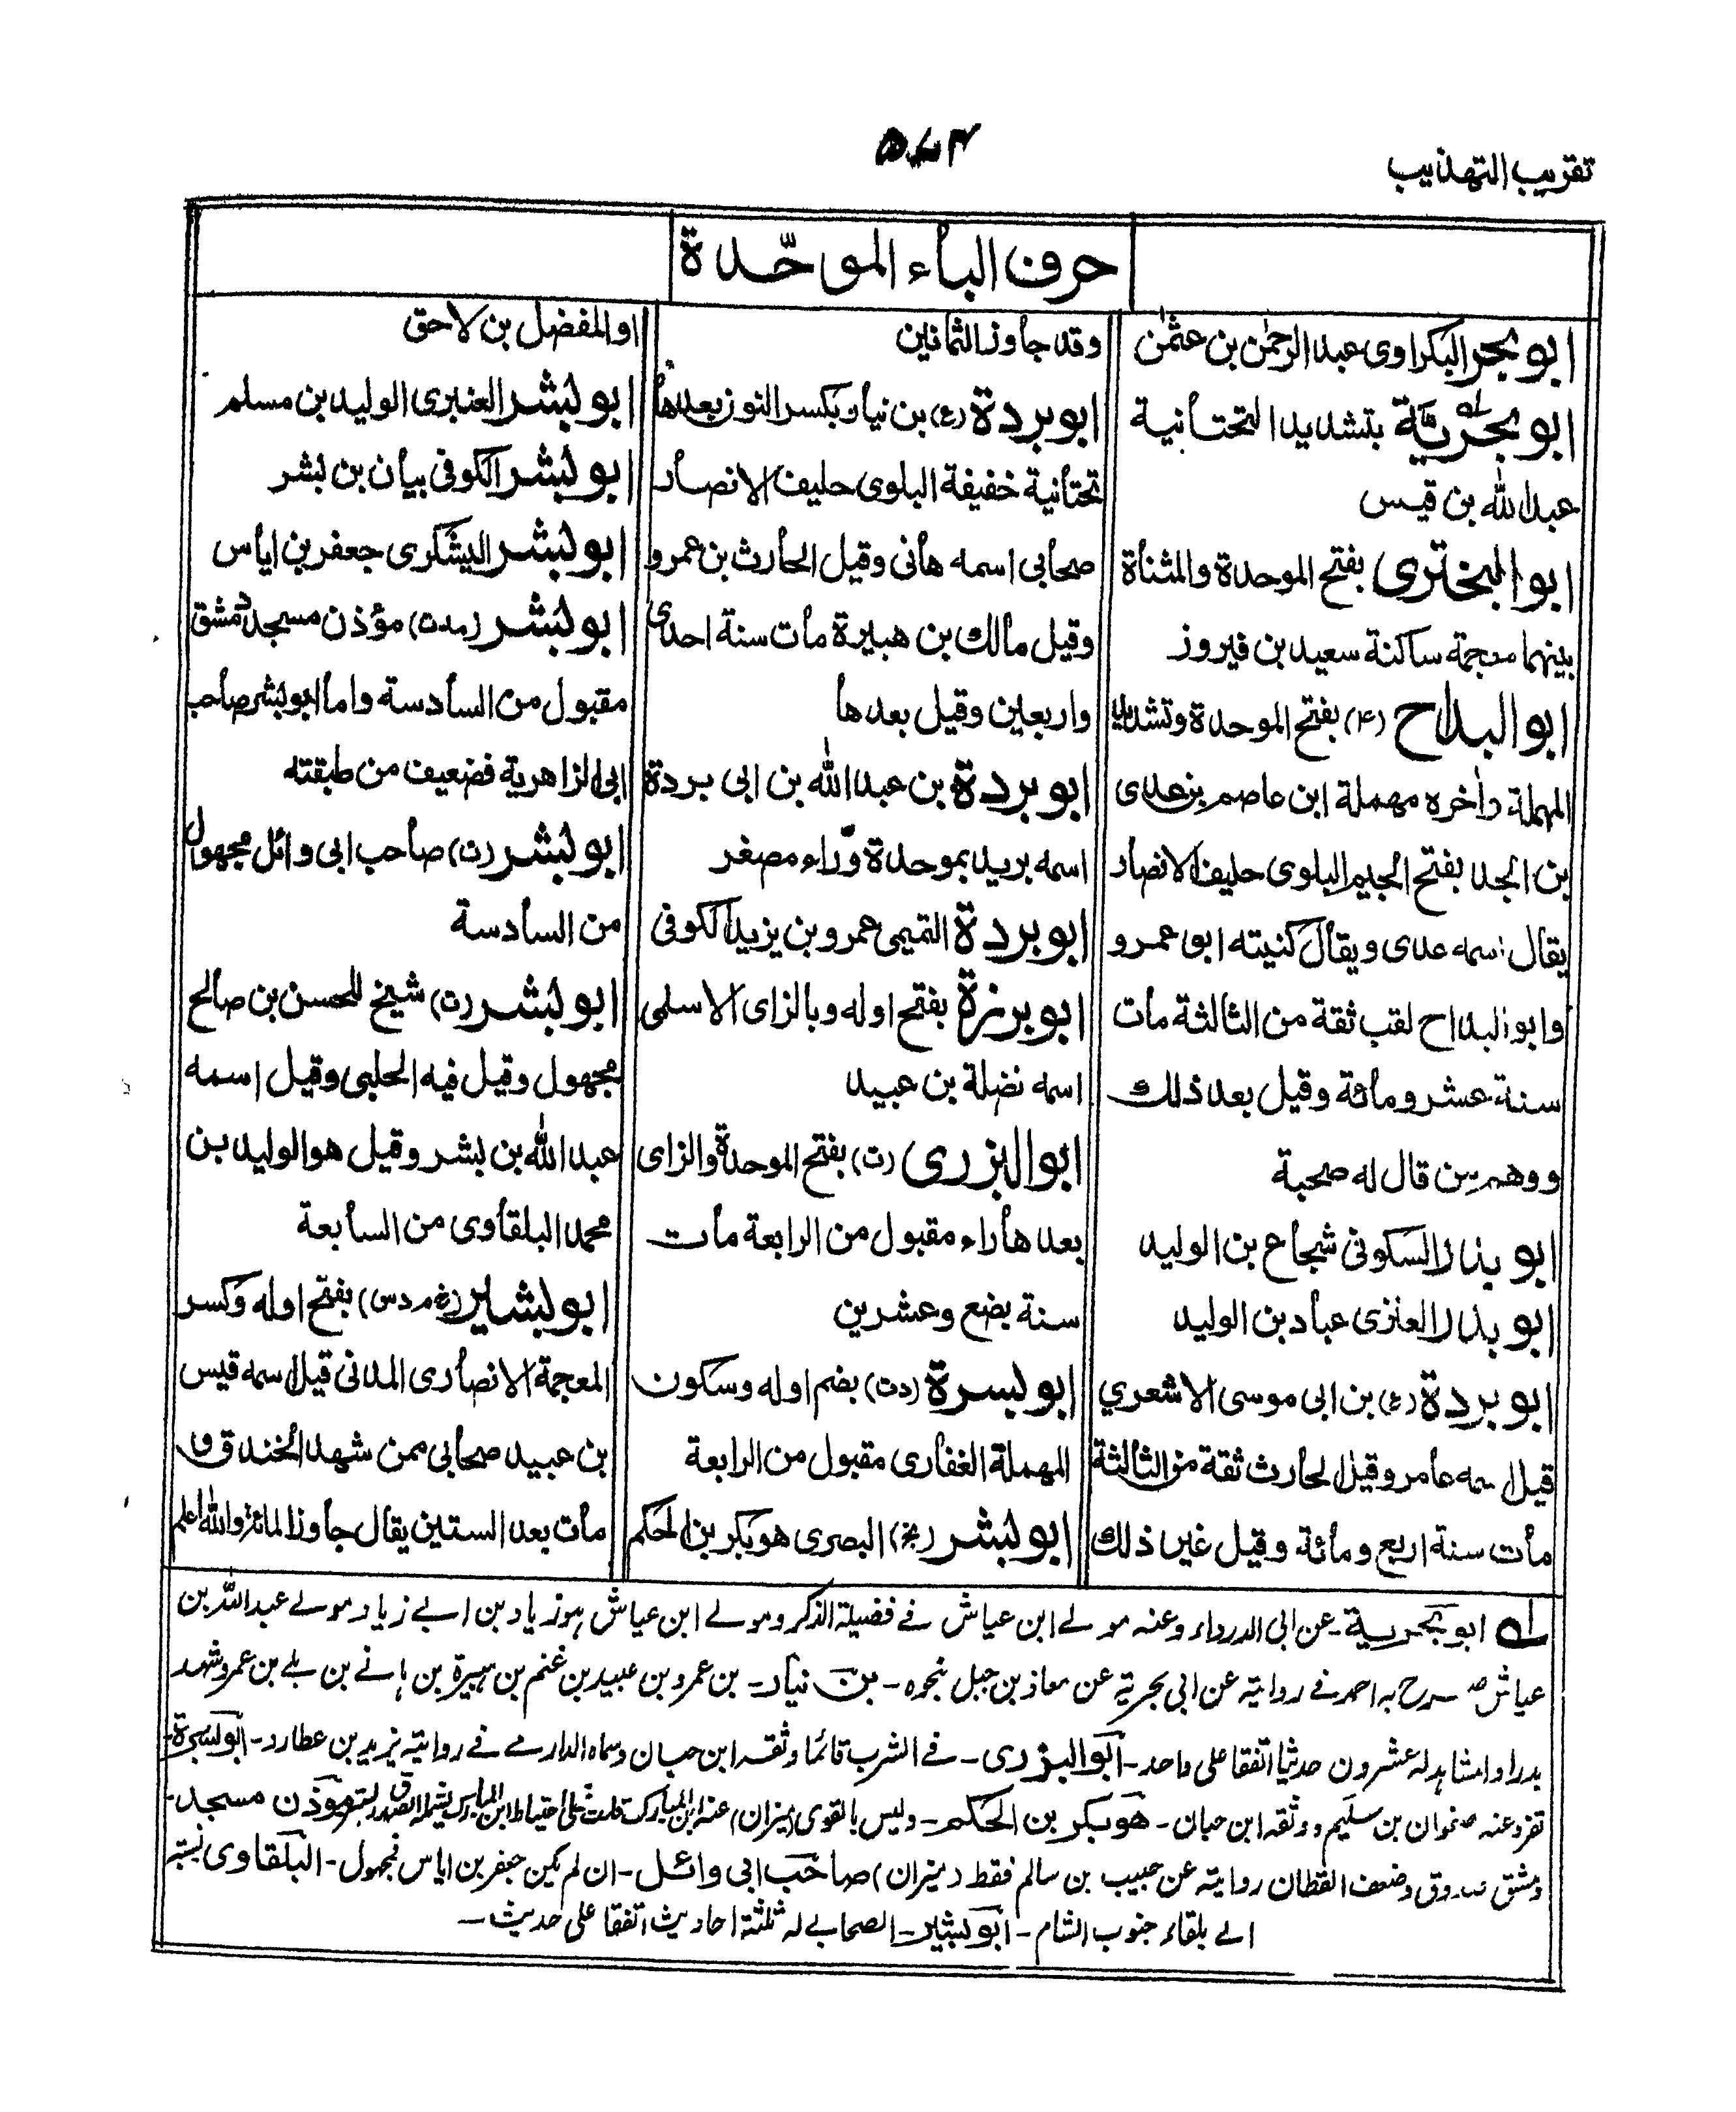 تقريب التهذيب
۵۷۴
حرف الباء الموحّدة
ابو بحر البكراوى عبد الرحمٰن بن عثمٰن
ابو بحريّة بتشديد التحتانية
عبد الله بن قيس
ابو البخترى بفتح الموحدة والمثناة
بينهما معجمة ساكنة سعيد بن فيروز
ابو البداح (۴) بفتح الموحدة وتشديد
المهملة واٰخره مهملة ابن عاصم بن عدى
بن الجد بفتح الجيم البلوى حليف الانصار
يقال اسمه عدى ويقال كنيته ابو عمرو
وابو البداح لقب ثقة من الثالثة مات
سنة عشر ومائة وقيل بعد ذلك
ووهم من قال له صحبة
ابو بدر السكونى شجاع بن الوليد
ابو بدر العنزى عباد بن الوليد
ابو بردة (ع) بن ابى موسى الاشعري
قيل اسمه عامر وقيل الحارث ثقة من الثالثة
مات سنة اربع ومائة وقيل غير ذلك
وقد جاوز الثمانين
ابو بردة (ع) بن نيار بكسر النون بعدها
تحتانية خفيفة البلوى حليف الانصار
صحابى اسمه هانى وقيل الحارث بن عمرو
وقيل مالك بن هبيرة مات سنة احدى
واربعين وقيل بعدها
ابو بردة بن عبد الله بن ابى بردة
اسمه بريد بموحدة وراء مصغر
ابو بردة التميمى عمرو بن يزيد الكوفى
ابو برزة بفتح اوله وبالزاى الاسلمى
اسمه نضلة بن عبيد
ابو البزرى (ت) بفتح الموحدة والزاى
بعدها راء مقبول من الرابعة مات
سنة بضع وعشرين
ابو بسرة (دت) بضم اوله وسكون
المهملة الغفارى مقبول من الرابعة
ابو بشر (بخ) البصرى هو بكر بن الحكم
او المفضل بن لاحق
ابو بشر العنبرى الوليد بن مسلم
ابو بشر الكوفى بيان بن بشر
ابو بشر اليشكرى جعفر بن اياس
ابو بشر (مدت) مؤذن مسجد دمشق
مقبول من السادسة واما ابو بشر صاحب
ابى الزاهرية فضعيف من طبقته
ابو بشر (ت) صاحب ابى وائل مجهول
من السادسة
ابو بشر (ت) شيخ للحسن بن صالح
مجهول وقيل فيه الحلبى وقيل اسمه
عبد الله بن بشر وقيل هو الوليد بن
محمد البلقاوى من السابعة
ابو بشير (خ م د س) بفتح اوله وكسر
المعجمة الانصارى المدنى قيل اسمه قيس
بن عبيد صحابى ممن شهد الخندق و
مات بعد الستين يقال جاوز المائة والله اعلم
له ابو بحرية۔ عن ابى الدرداء وعنه مولے ابن عياش فے فضيلة الذكر ومولے ابن عياش ہو زياد بن ابے زياد مولے عبد اللہ بن
عياش صرح به احمد فے روايته عن ابى بحرية عن معاذ بن جبل نحوه۔ بن نيار۔ بن عمرو بن عبيد بن غنم بن ہبيرة بن ہانے بن بلے بن عمرو شهد
بدرا والمشاہد له عشرون حديثا اتفقا على واحد۔ ابو البزرى۔ فے الشرب قائما وثقه ابن حبان وسماه الدارمے فے روايته يزيد بن عطارد۔ ابو بسرة۔
تفرد عنه صفوان بن سليم ووثقه ابن حبان۔ هو بكر بن الحكم۔ وليس بالقوى (ميزان) عنه ابن المبارك قلت على احتياط ابن المبارك مؤذن مسجد۔
دمشق صدوق وضعف القطان روايته عن حبيب بن سالم فقط (ميزان) صاحب ابى وائل۔ ان لم يكن جعفر بن اياس فمجهول۔ البلقاوى نسبته
الے بلقاء جنوب الشام۔ ابو بشير۔ الصحابے له ثلثة احاديث اتفقا على حديث۔